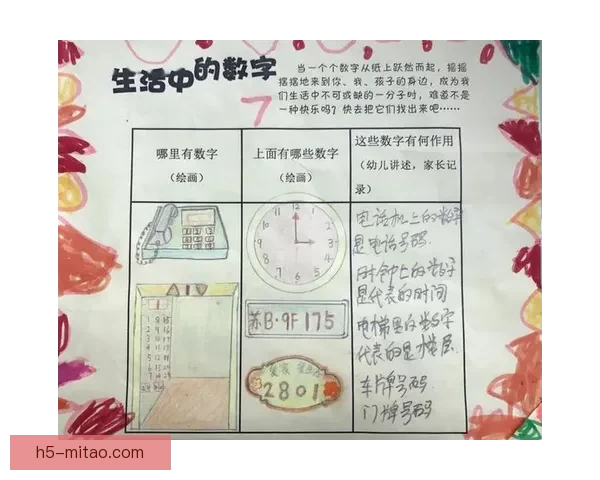 生活中的数字
当一个个数字从纸上跃然而起，摇摇
摆摆地来到你、我、孩子的身边，成为我
们生活中不可或缺的一分子时，难道不是
一种快乐吗？快去把它们找出来吧……
7
哪里有数字
（绘画）
上面有哪些数字
（绘画）
这些数字有何作用
（幼儿讲述，家长记
录）
12
1
2
3
4
5
6
7
8
9
10
11
苏B·9F175
2801
电话机上的数字
是电话号码.
时钟上的数字
是代表的时间
电梯里的数字
代表的是楼层.
车牌号码.
门牌号码
h5-mitao.com